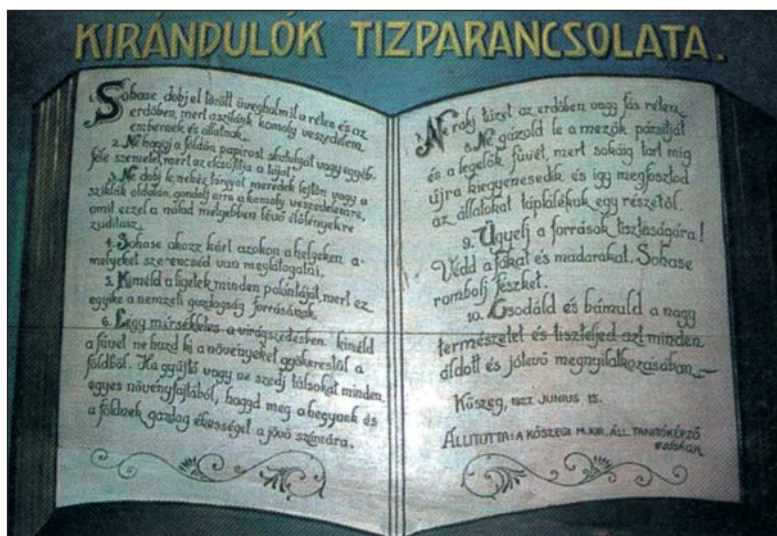 KIRÁNDULÓK TIZPARANCSOLATA.
1. Sohase dobj el törött üvegholmit a réten és az
erdőben, mert a szilánk komoly veszedelem
embernek és állatnak.
2. Ne hagyj a földön papirost skatulyát vagy egyéb-
féle szemetet, mert az elcsúfitja a tájat.
3. Ne dobj le nehéz tárgyat meredek lejtőn vagy a
sziklák oldalán, gondolj arra a komoly veszedelemre,
amit ezzel a nálad mélyebben lévő élőlényekre
zúditasz.
4. Sohase okozz kárt azokon a helyeken a-
melyeket szerencséd van meglátogatni.
5. Kiméld a ligetek minden palántáját, mert ez
egyike a nemzeti gazdagság forrásának.
6. Légy mérsékletes a virágszedésben kiméld
a füvet ne huzd ki a növényeket gyökerestől a
földből. Ha gyűjtő vagy ne szedj túlsokat minden
egyes növényfajtából, hagyd meg a hegynek és
a földnek gazdag ékességét a jövő számára.
7. Ne rakj tüzet az erdőben vagy fás réten
8. Ne gázold le a mezők pázsitját
és a legelők füvét, mert sokáig tart mig
újra kiegyenesedik és igy megfosztod
az állatokat táplálékuk egy részétől.
9. Ügyelj a források tisztaságára!
Védd a fákat és madarakat. Sohase
rombolj fészket.
10. Csodáld és bámuld a nagy
természetet és tiszteljed azt minden
áldott és jótevő megnyilatkozásában.
Kőszeg, 1927 JUNIUS 15.
ÁLLITOTTA: A KŐSZEGI M. KIR. ÁLL. TANITÓKÉPZŐ